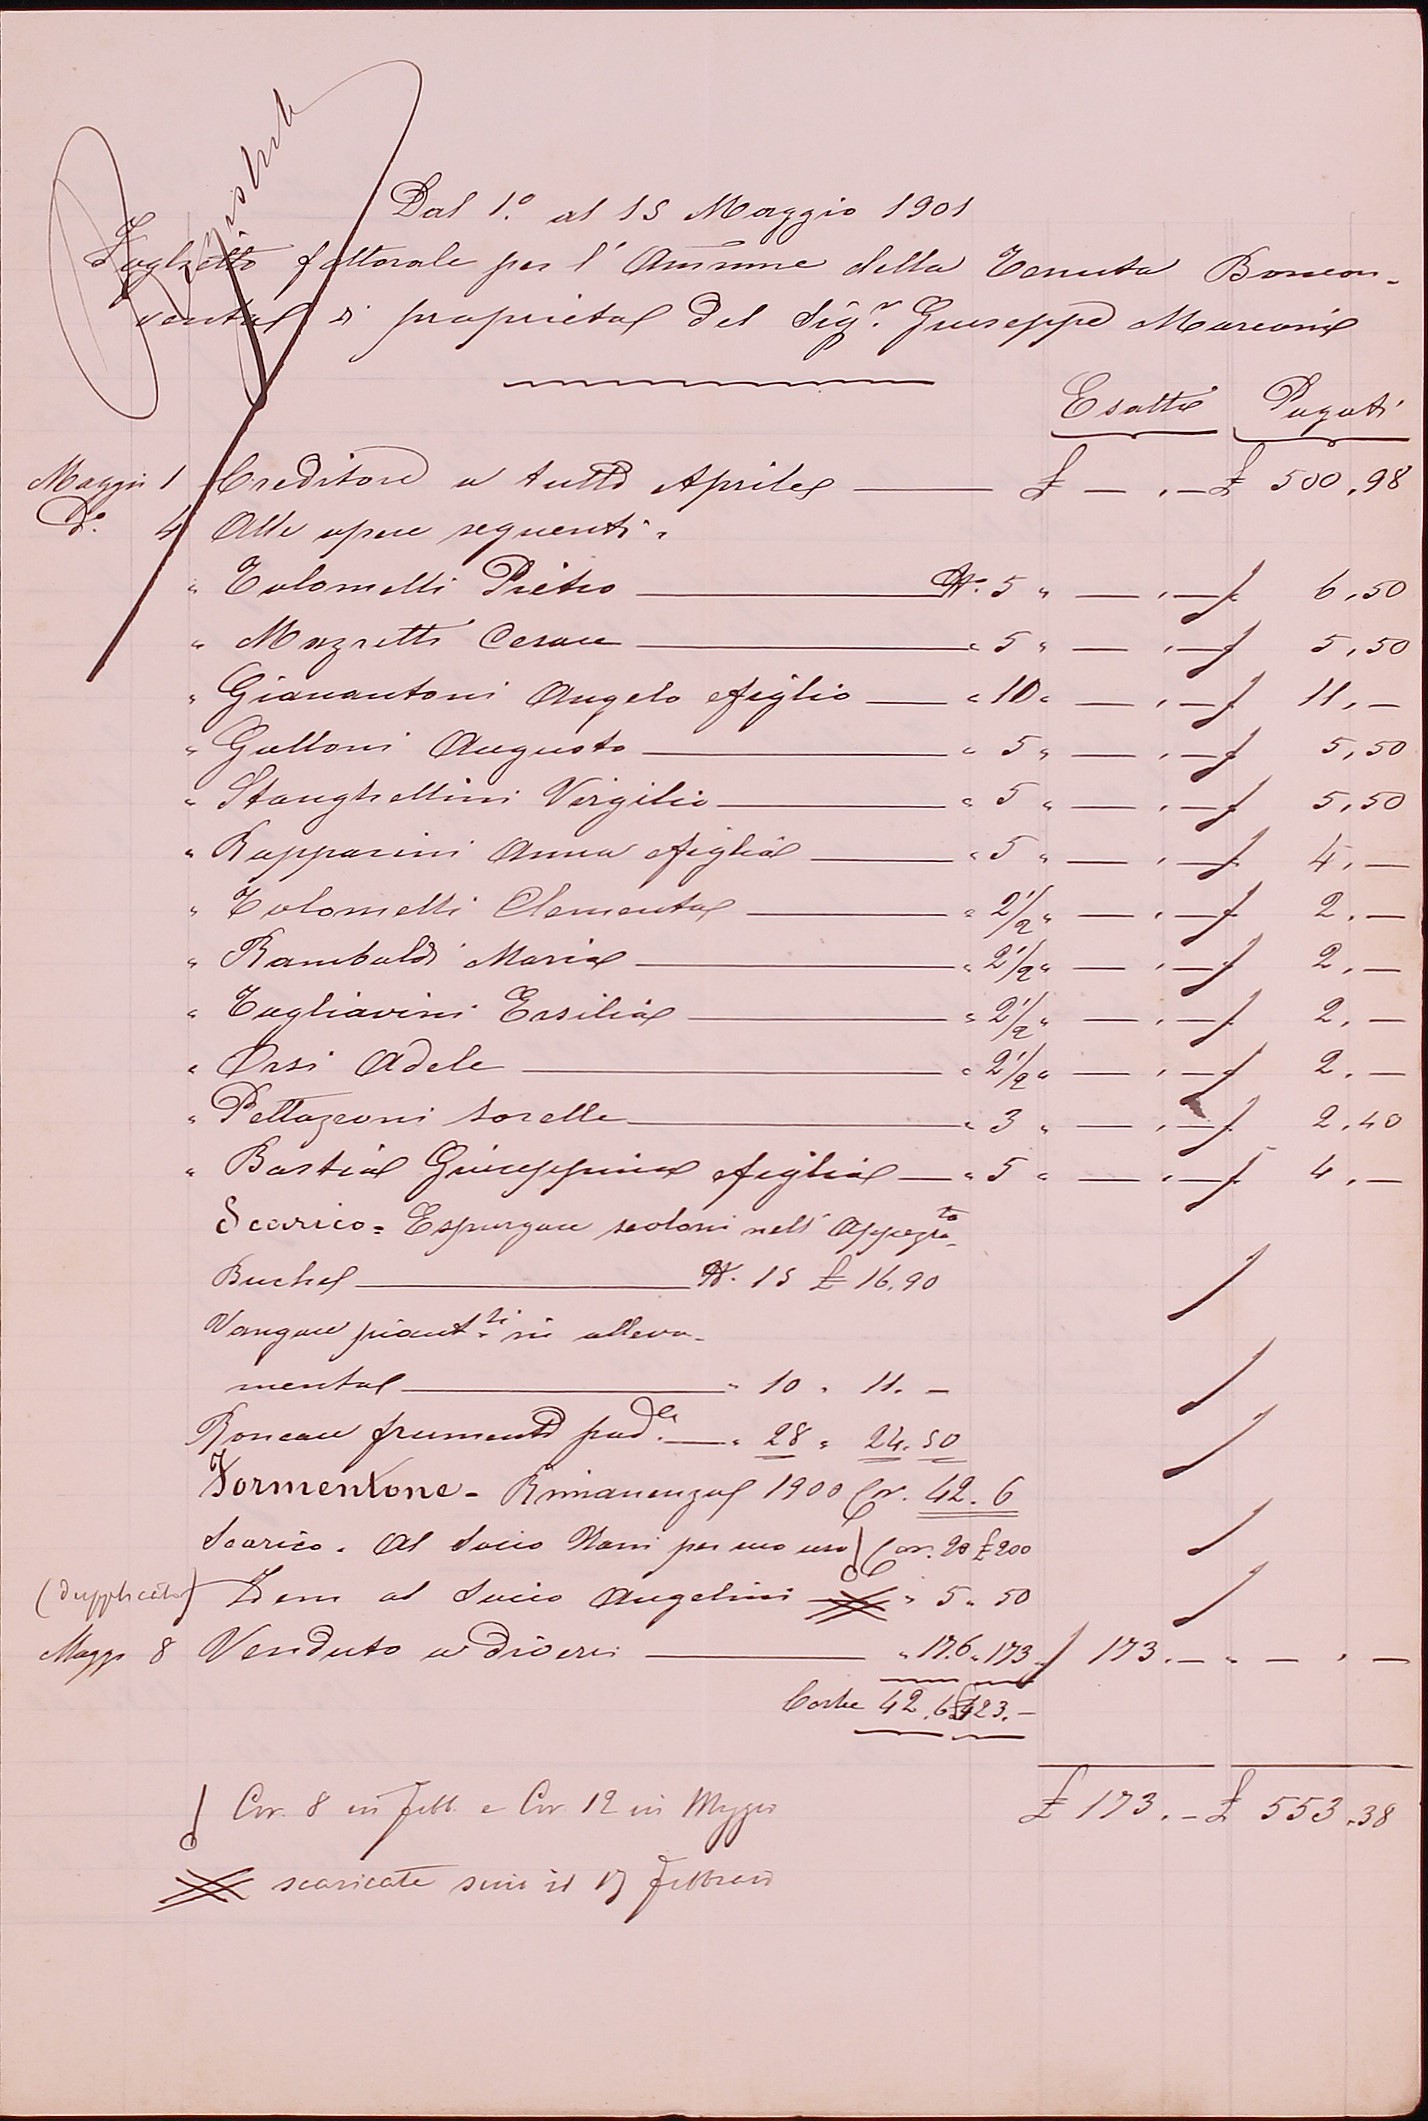 Dal 1.° al 15 Maggio 1901
Foglietto fattorale per l'Amm.ne della Tenuta Boncon-
vento di proprietà del Sig.r Giuseppe Marconi
Esatti Pagati
Maggio 1 Creditore a tutto Aprile £ — . — £ 500.98
D.° 4 Alle opere seguenti.
" Tolomelli Pietro N. 5 " — . — £ 6.50
" Mazzetti Cesare " 5 " — . — £ 5.50
" Gianantoni Angelo e figlio " 10 " — . — £ 11. —
" Galloni Augusto " 5 " — . — £ 5.50
" Stanghellini Virgilio " 5 " — . — £ 5.50
" Rapparini Anna e figlia " 5 " — . — £ 4. —
" Tolomelli Clementa " 2 1/2 " — . — £ 2. —
" Rambaldi Maria " 2 1/2 " — . — £ 2. —
" Tagliavini Ersilia " 2 1/2 " — . — £ 2. —
" Orsi Adele " 2 1/2 " — . — £ 2. —
" Pettazzoni sorelle " 3 " — . — £ 2.40
" Bastia Giuseppina e figlia " 5 " — . — £ 4. —
Scarico = Espurgare scoloni nell'Appezza.to
N. 15 £ 16.90
Vangare piant.ni in alleva-
mento " 10 " 11. —
Roncare frumento pad.le " 28 " 24.50
Formentone - Rimanenza 1900 Cor. 42.6
Scarico. Al Socio Nani per suo uso Cor. 20 £ 200
(dupplicato) Idem al Socio Angelini " 5 " 50
Magg. 8 Venduto a diversi " 17.6 " 173 " 173. — " — . —
Corbe 42.6 £ 423. —
£ 173. — £ 553.38
Cor. 8 in Febb. e Cor. 12 in Maggio
scaricate sino il 17 febbraio